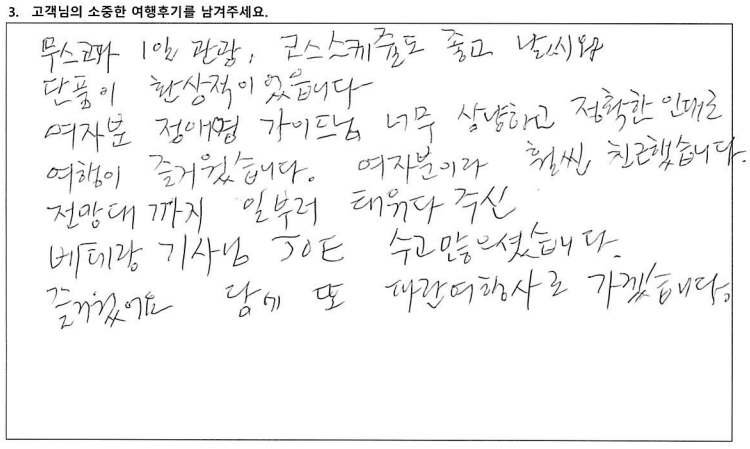 3. 고객님의 소중한 여행후기를 남겨주세요.
무스코카 1일 관광, 코스스케쥴도 좋고 날씨와
단품이 환상적이었읍니다
여자분 정애경 가이드님 너무 상냥하고 정확한 인대로
여행이 즐거웠습니다. 여자분이라 훨씬 친근했습니다.
전망대까지 일부러 태워다 주신
베테랑 기사님 JOE 수고많으셨습니다.
즐거웠어요 담에 또 파란여행사로 가겠습니다.